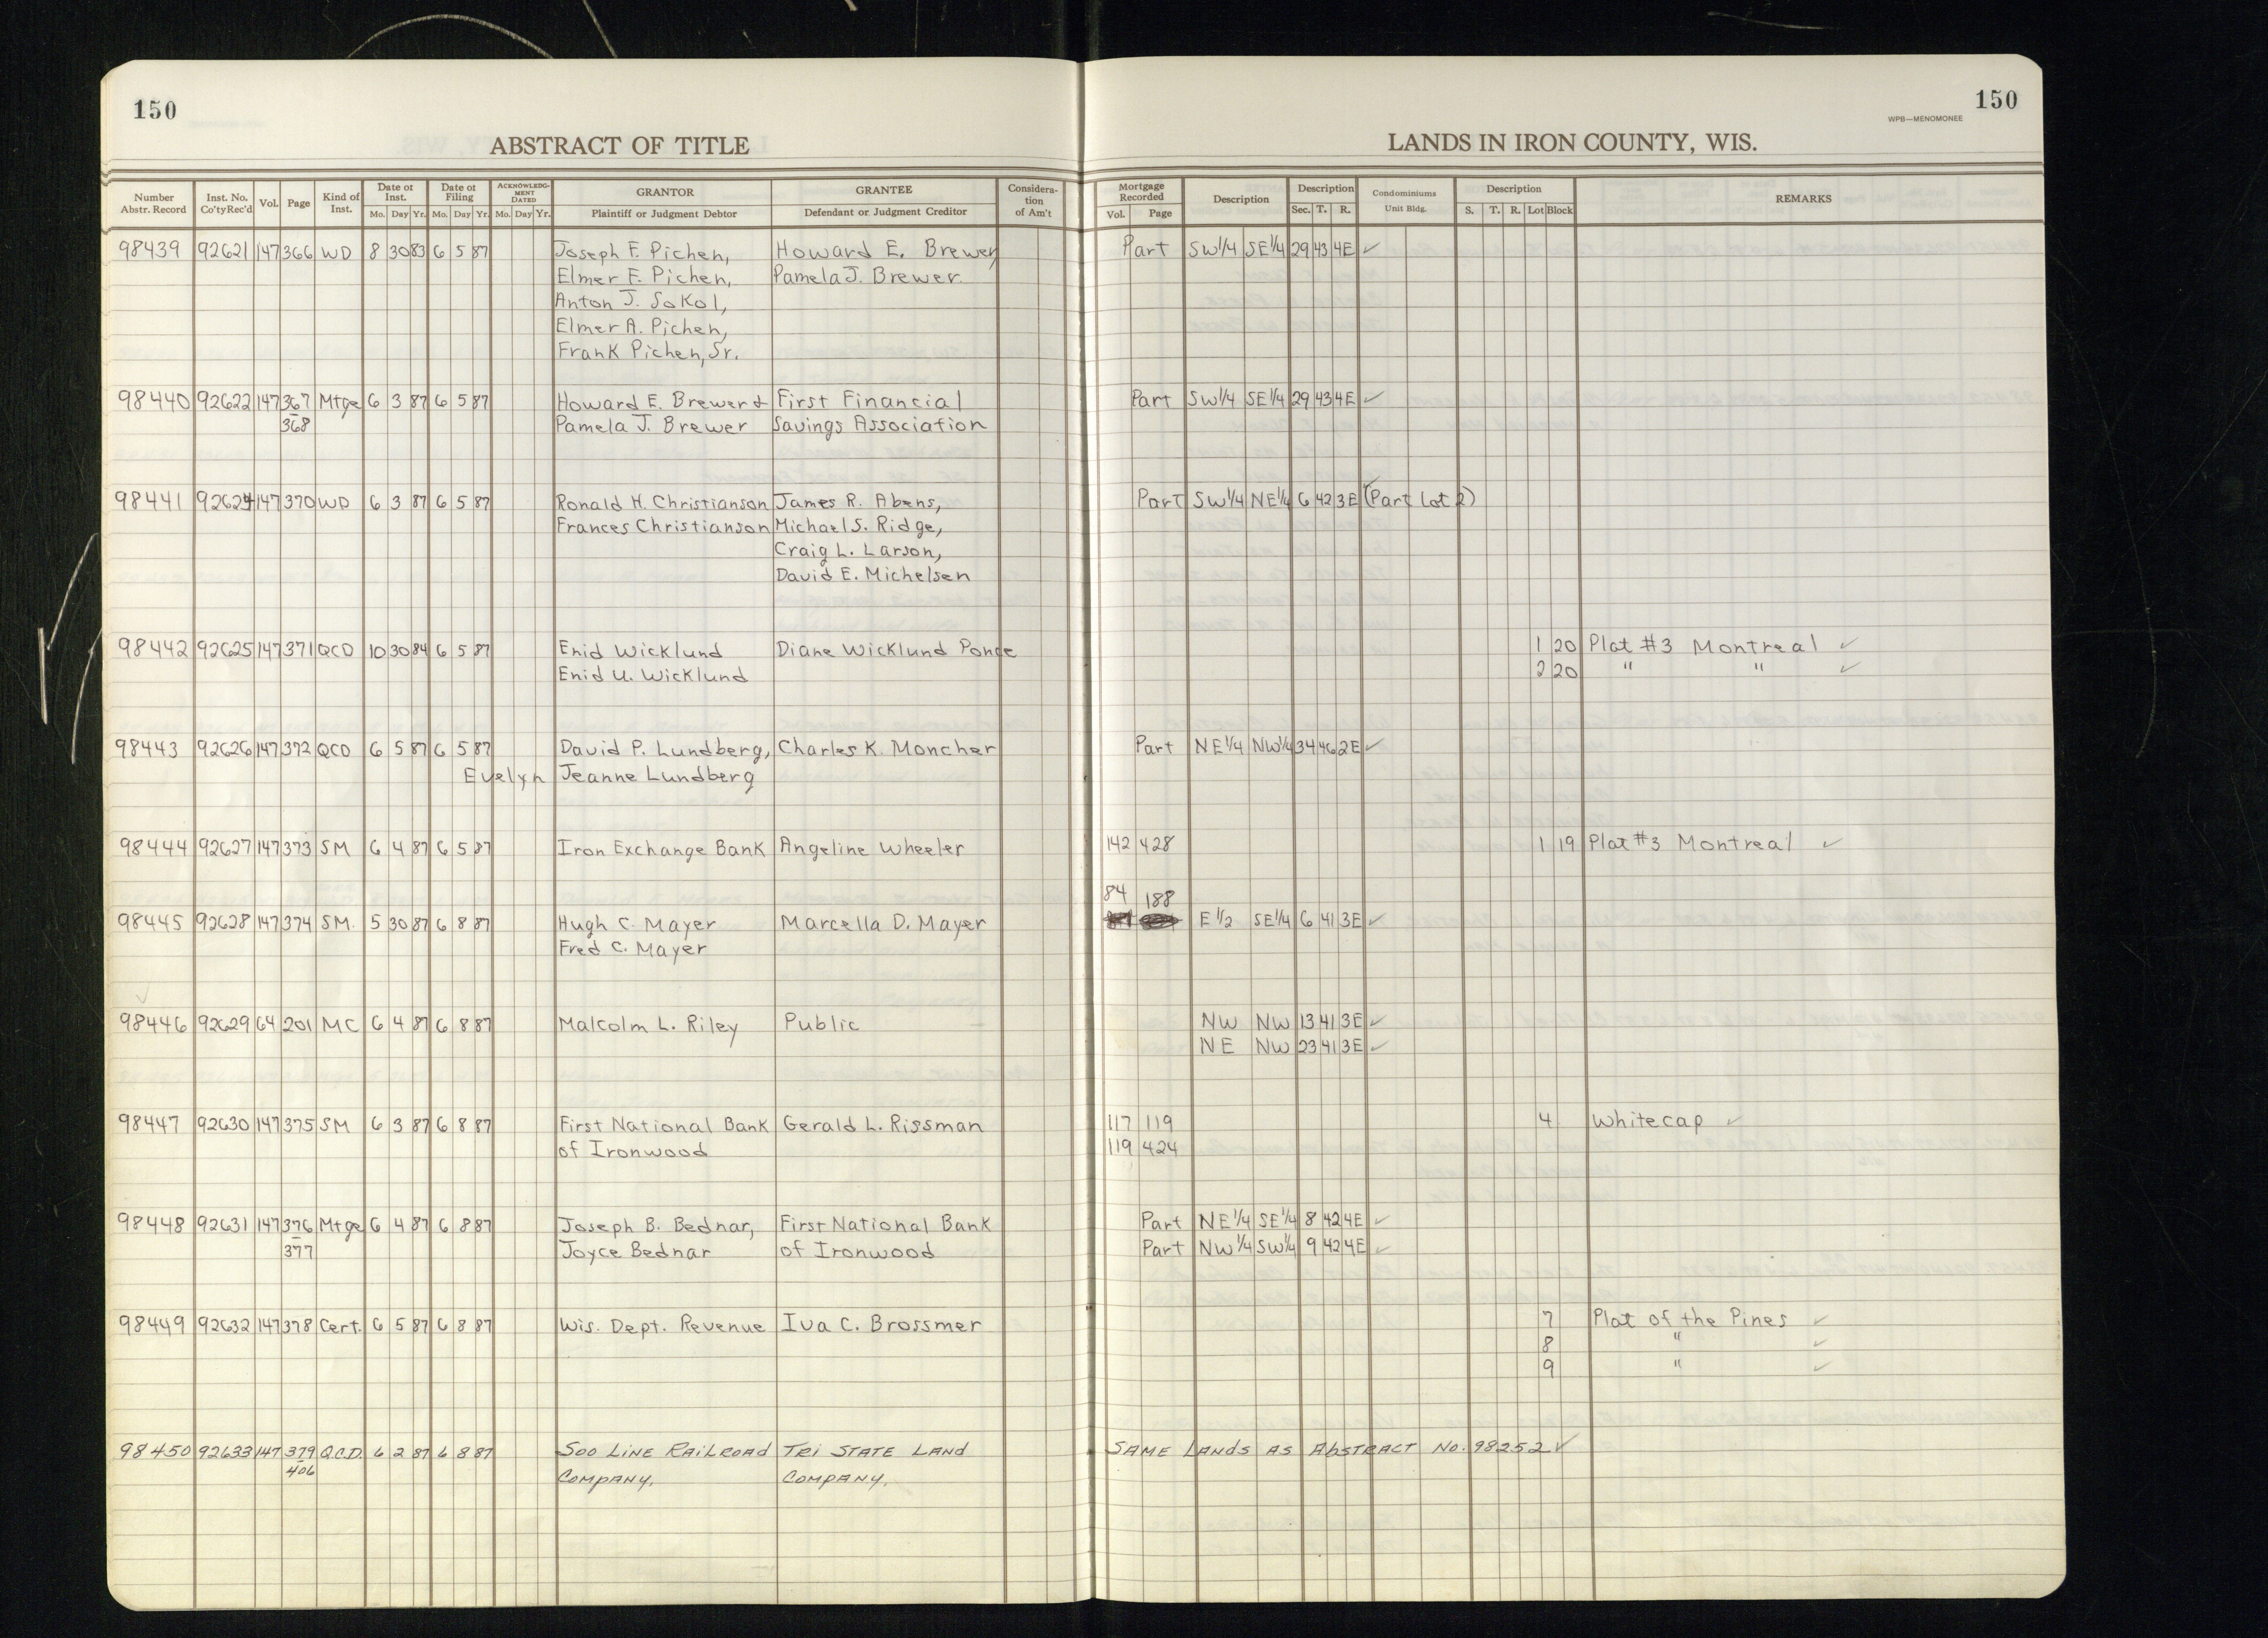 150
150
WPB—MENOMONEE
ABSTRACT OF TITLE
LANDS IN IRON COUNTY, WIS.
Number Abstr. Record | Inst. No. Co'ty Rec'd | Vol. | Page | Kind of Inst. | Date of Inst. Mo. Day Yr. | Date of Filing Mo. Day Yr. | ACKNOWLEDGMENT DATED Mo. Day Yr. | GRANTOR Plaintiff or Judgment Debtor | GRANTEE Defendant or Judgment Creditor | Consideration of Am't | Mortgage Recorded Vol. Page | Description | Description Sec. T. R. | Condominiums Unit Bldg. | Description S. T. R. Lot Block | REMARKS
98439 92621 147 366 WD 8 30 83 6 5 87 Joseph F. Pichen, Howard E. Brewer Part SW1/4 SE1/4 29 43 4E ✓
Elmer F. Pichen, Pamela J. Brewer
Anton J. Sokol,
Elmer A. Pichen,
Frank Pichen, Sr.
98440 92622 147 367 Mtge 6 3 87 6 5 87 Howard E. Brewer & First Financial Part SW1/4 SE1/4 29 43 4E ✓
368 Pamela J. Brewer Savings Association
98441 92624 147 370 WD 6 3 87 6 5 87 Ronald H. Christianson James R. Abens, Part SW1/4 NE1/4 6 42 3E (Part Lot 2)
Frances Christianson Michael S. Ridge,
Craig L. Larson,
David E. Michelsen
98442 92625 147 371 QCD 10 30 84 6 5 87 Enid Wicklund Diane Wicklund Ponce 1 20 Plat #3 Montreal ✓
Enid U. Wicklund 2 20 " " ✓
98443 92626 147 372 QCD 6 5 87 6 5 87 David P. Lundberg, Charles K. Moncher Part NE1/4 NW1/4 34 46 2E ✓
Evelyn Jeanne Lundberg
98444 92627 147 373 SM 6 4 87 6 5 87 Iron Exchange Bank Angeline Wheeler 142 428 1 19 Plat #3 Montreal ✓
84 188
98445 92628 147 374 SM. 5 30 87 6 8 87 Hugh C. Mayer Marcella D. Mayer E1/2 SE1/4 6 41 3E ✓
Fred C. Mayer
98446 92629 64 201 MC 6 4 87 6 8 87 Malcolm L. Riley Public NW NW 13 41 3E ✓
NE NW 23 41 3E ✓
98447 92630 147 375 SM 6 3 87 6 8 87 First National Bank Gerald L. Rissman 117 119 4 Whitecap ✓
of Ironwood 119 424
98448 92631 147 376 Mtge 6 4 87 6 8 87 Joseph B. Bednar, First National Bank Part NE1/4 SE1/4 8 42 4E ✓
377 Joyce Bednar of Ironwood Part NW1/4 SW1/4 9 42 4E ✓
98449 92632 147 378 Cert. 6 5 87 6 8 87 Wis. Dept. Revenue Iva C. Brossmer 7 Plat of the Pines ✓
8 " ✓
9 " ✓
98450 92633 147 379 Q.C.D. 6 2 87 6 8 87 SOO LINE RAILROAD TRI STATE LAND SAME LANDS AS ABSTRACT NO. 98252 ✓
406 COMPANY. COMPANY.